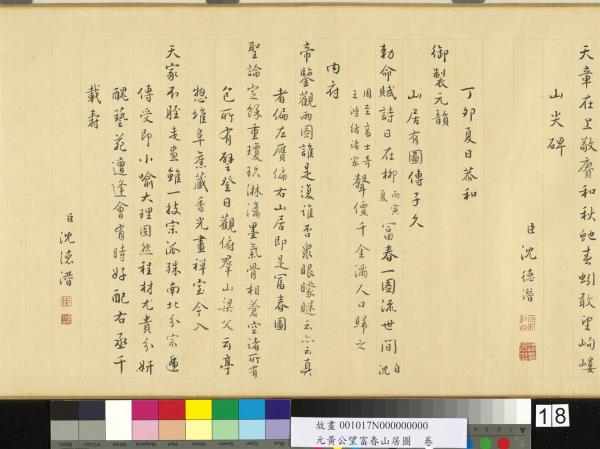 天章在上敬賡和秋蛇春蚓敢望峋嶁
山尖碑
臣沈德潛
丁卯夏日恭和
御製元韻
山居有圖傳子久
勅命賦詩日在柳丙寅夏富春一圖流世間自沈
周至高士奇王時緒諸家聲價千金滿人口歸之
內府
帝鑒觀兩圖誰是復誰否眾眼矇云亦云真
者偏左贗偏右山居即是富春圖
聖論定餘重瓊玖淋漓墨氣骨相蒼空諸所有
包所有譬登日觀俯群山梁父云亭
惣堆阜舊藏香光畫禪室今入
天家不脛走畫雖一技宗派殊南北分宗遞
傳受即小喻大理固然程材尤貴分妍
醜藝苑遭逢會有時好配右丞千
載壽
臣沈德潛
故畫 001017N000000000
元黃公望富春山居圖 卷
18